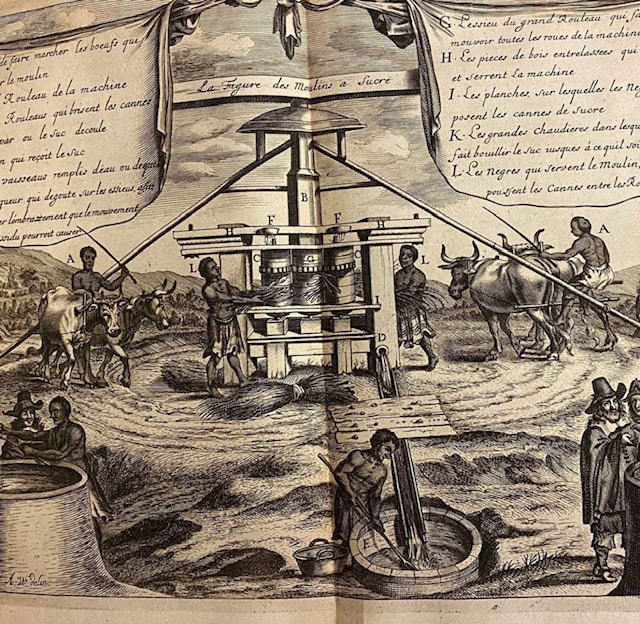 de faire marcher les boeufs qui
r le moulin
Rouleau de la machine
Rouleaux qui brisent les cannes
par ou le suc decoule
n qui reçoit le suc
vaisseaus remplis deau ou de
queur qui degoute sur les essieus, afin
er lembrassement que le mouvement
endu pourroit causer
La Figure des Moulins a Sucre
G. Lessieu du grand Rouleau qui f
mouvoir toutes les roues de la machine
H. Les pieces de bois entrelassees qui
et serrent La machine
I. Les planches, sur lesquelles les Neg
posent les cannes de sucre
K. Les grandes chaudieres dans lesqu
fait bouillir le suc iusques à ce quil soi
L. Les Negres qui servent le Moulin
poussent les Cannes entre les Ro
A
B
A
H F F H
L C G C L
D
E
A. W. delin.